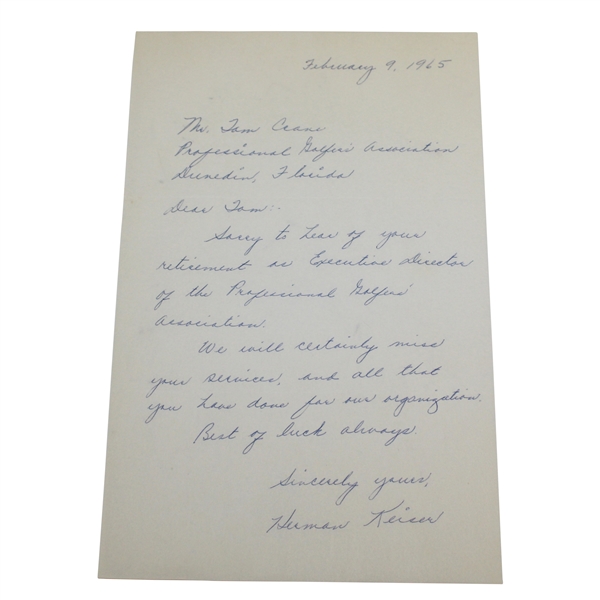 February 9, 1965
Mr. Tom Crane
Professional Golfers' Association
Dunedin, Florida
Dear Tom:-
Sorry to hear of your
retirement as Executive Director
of the Professional Golfers'
Association.
We will certainly miss
your services, and all that
you have done for our organization.
Best of luck always.
Sincerely yours,
Herman Keiser